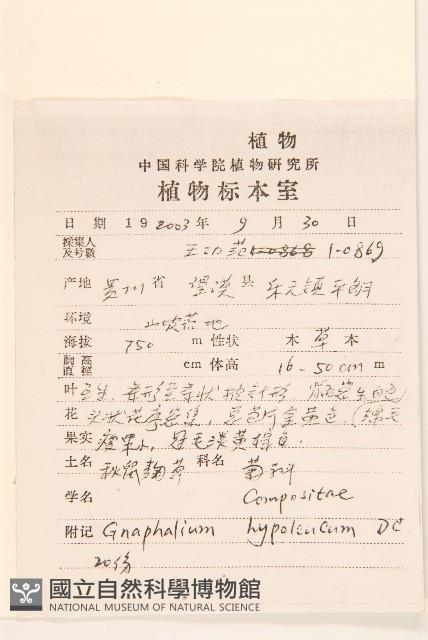 植物
中国科学院植物研究所
植物标本室
日 期 19 2003 年 9 月 30 日
採集人
及号数 王功范 1-0868 1-0869
产地 贵州 省 望谟 县 乐元镇平朗
环境 山坡荒地
海拔 750 m 性状 木 草 本
胸高
直径 cm 体高 16-50cm m
叶 互生,
花 头状花序密集, 总苞片金黄色
果实 瘦果小, 冠毛淡黄
土名 秋鼠麴草 科名 菊科
学名 Compositae
附记 Gnaphalium hypoleucum DC
20份
國立自然科學博物館
NATIONAL MUSEUM OF NATURAL SCIENCE